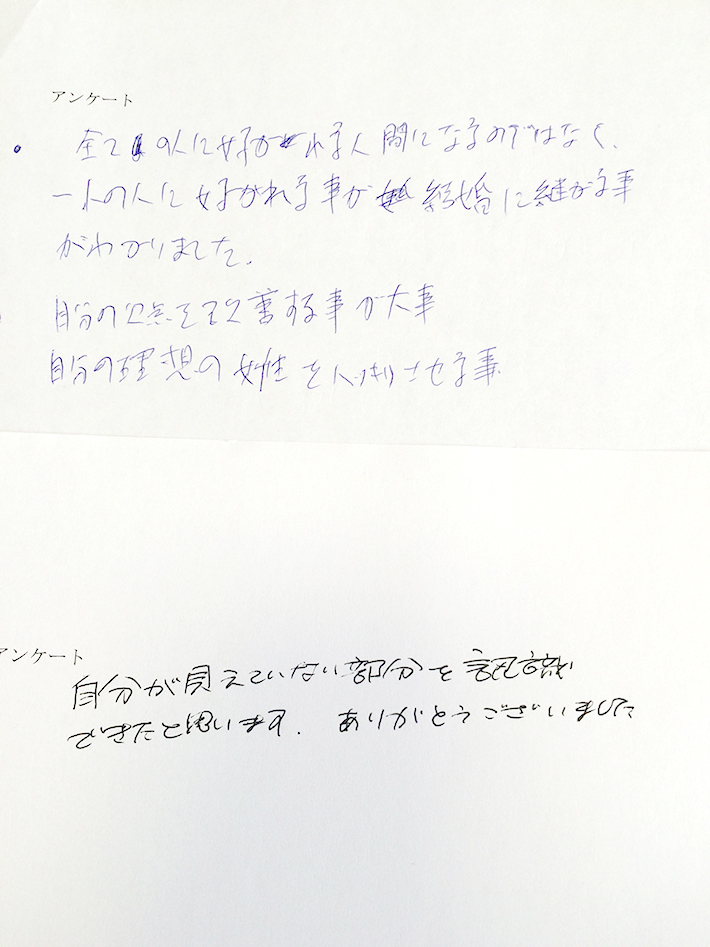 アンケート
全ての人に好かれる人間になるのではなく、
一人の人に好かれる事が結婚に継がる事
がわかりました。
自分の欠点を改善する事が大事
自分の理想の女性をハッキリさせる事
アンケート
自分が見えていない部分を認識
できたと思います. ありがとうございました